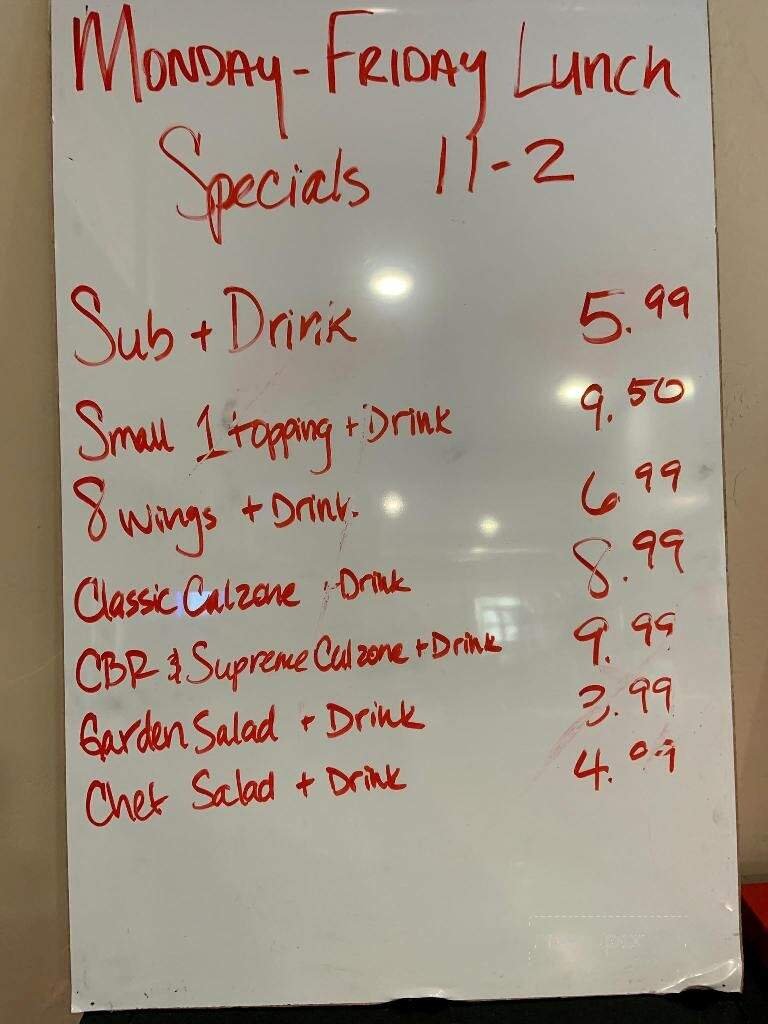 MONDAY-FRIDAY Lunch
Specials 11-2
Sub + Drink 5.99
Small 1 topping + Drink 9.50
8 wings + Drink 6.99
Classic Calzone + Drink 8.99
CBR & Supreme Calzone + Drink 9.99
Garden Salad + Drink 3.99
Chef Salad + Drink